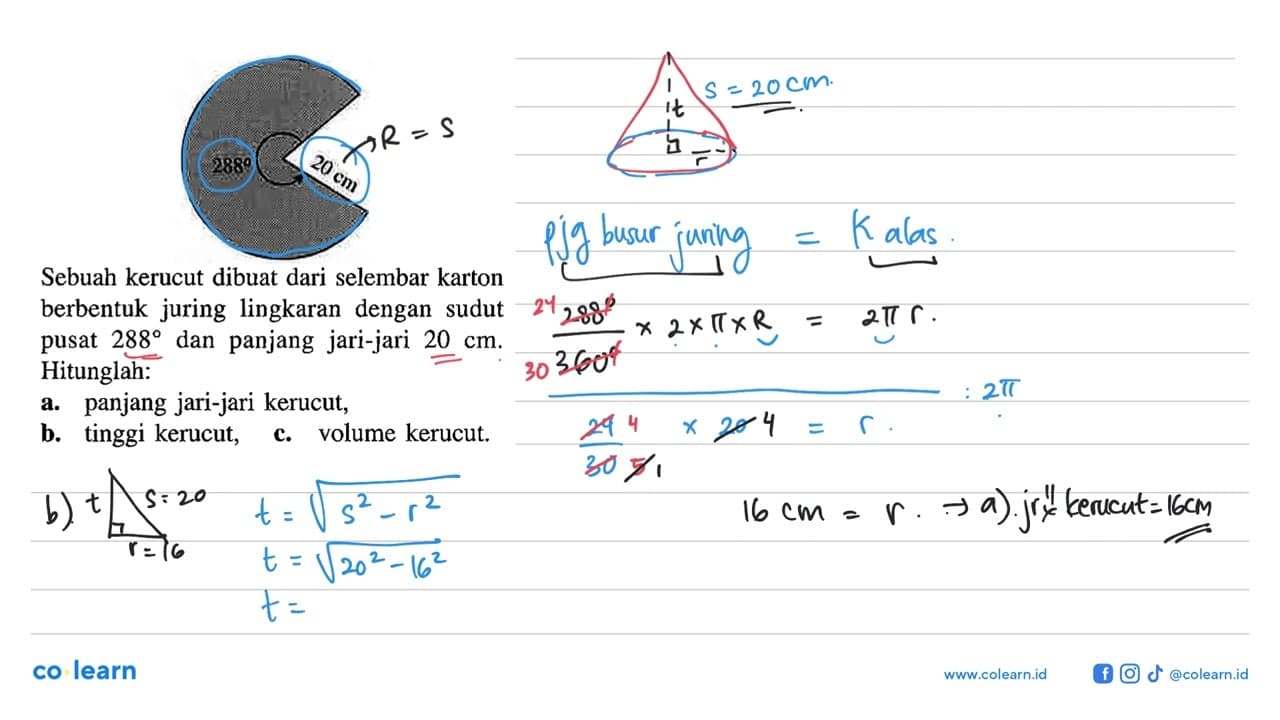 288°
20 cm
R = S
S = 20 cm.
t
r
Sebuah kerucut dibuat dari selembar karton
berbentuk juring lingkaran dengan sudut
pusat 288° dan panjang jari-jari 20 cm.
Hitunglah:
a. panjang jari-jari kerucut,
b. tinggi kerucut, c. volume kerucut.
pjg busur juring = K alas.
24 288° / 30 360° × 2 × π × R = 2πr.
: 2π
24 4 / 30 5 1 × 20 4 = r.
16 cm = r. → a). jr" kerucut = 16cm
b). t S = 20
r = 16
t = √s² - r²
t = √20² - 16²
t =
co learn
www.colearn.id
@colearn.id